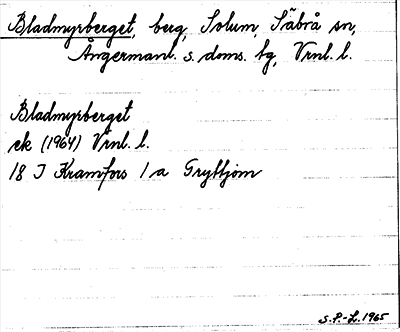 Bladmyrberget, berg, Solum, Säbrå sn,
Ångermanl. s. doms. tg, Vrnl. l.
Bladmyrberget
ek (1964) Vrnl. l.
18 I Kramfors 1 a Gryttjom
S.P.-L. 1965